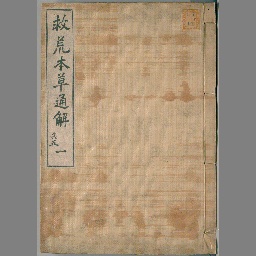 救荒本草通解
一